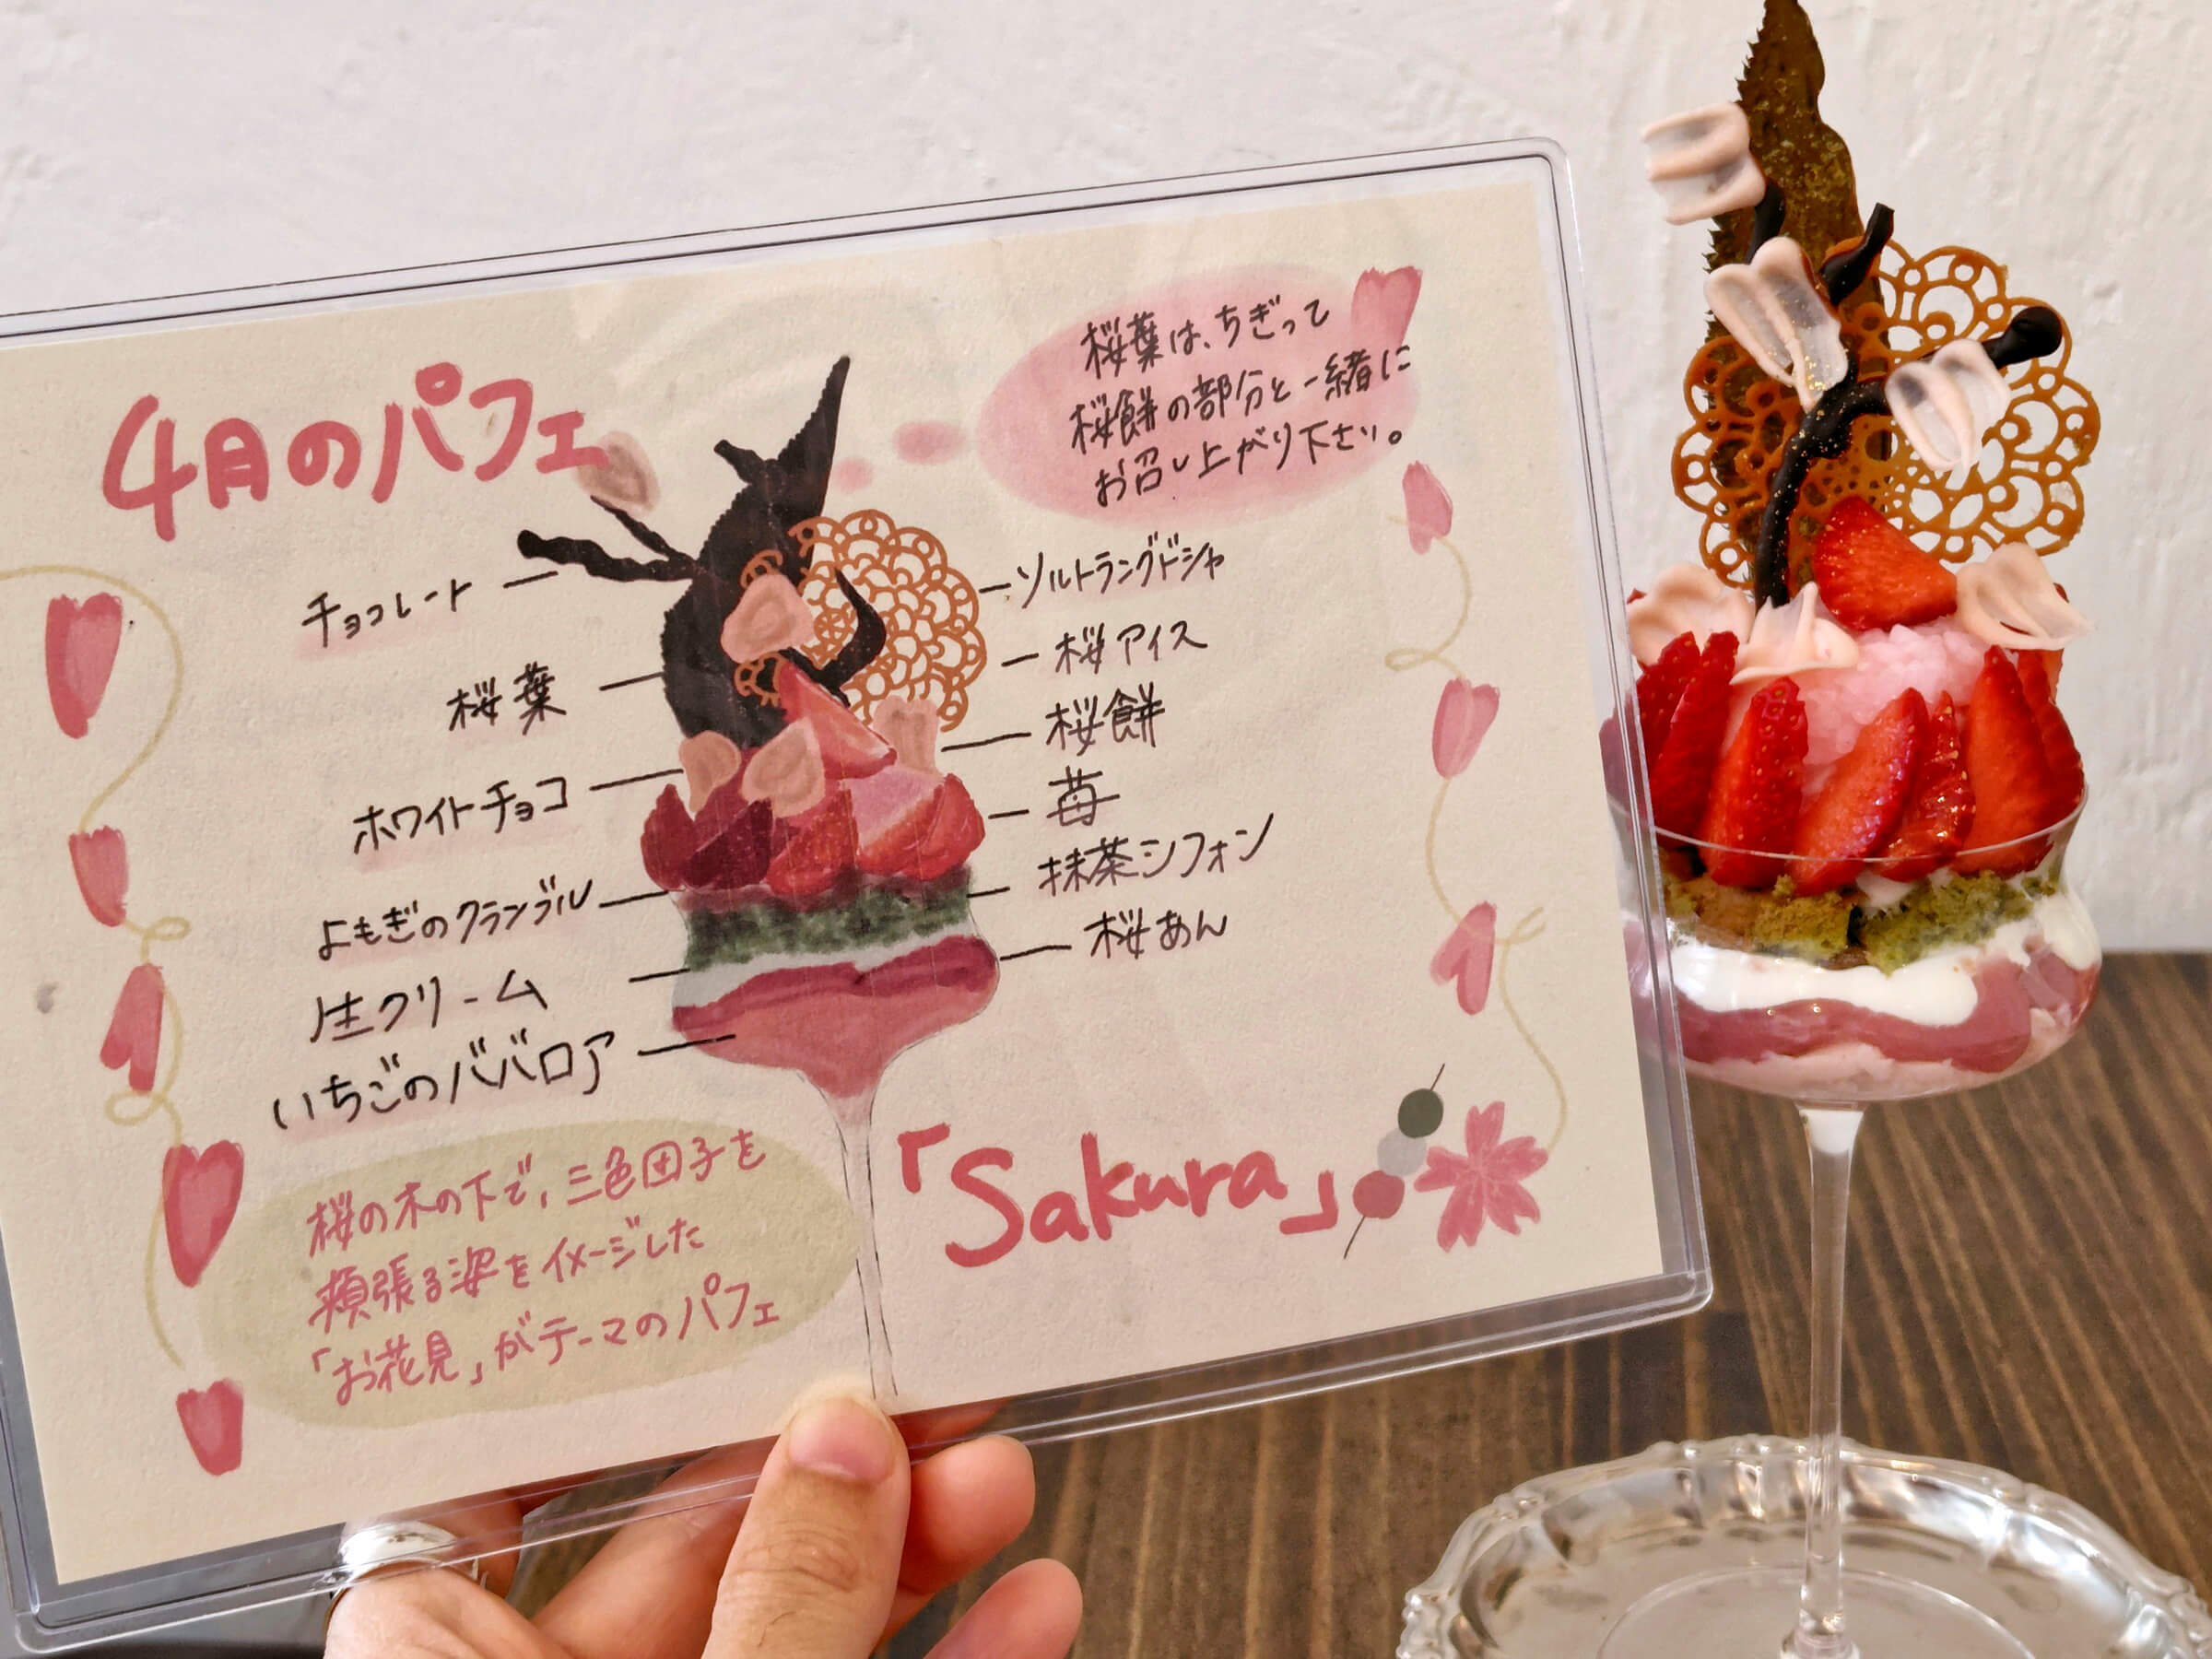 4月のパフェ
桜葉は、ちぎって
桜餅の部分と一緒に
お召し上がり下さい。
チョコレート
桜葉
ホワイトチョコ
よもぎのクランブル
生クリーム
いちごのババロア
ソルトラングドシャ
桜アイス
桜餅
苺
抹茶シフォン
桜あん
桜の木の下で、三色団子を
頬張る姿をイメージした
「お花見」がテーマのパフェ
「Sakura」